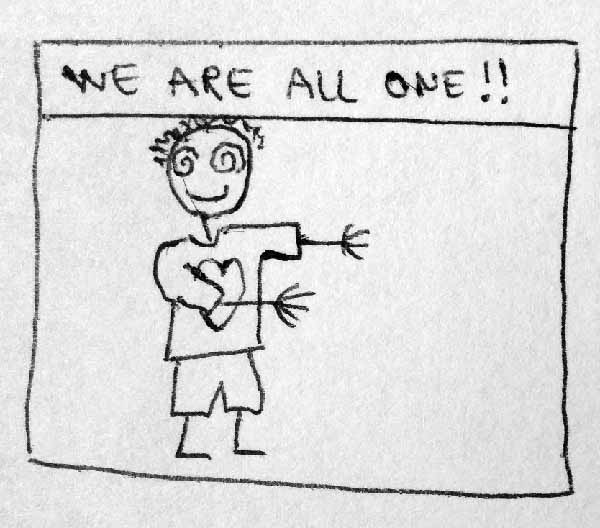 WE ARE ALL ONE!!